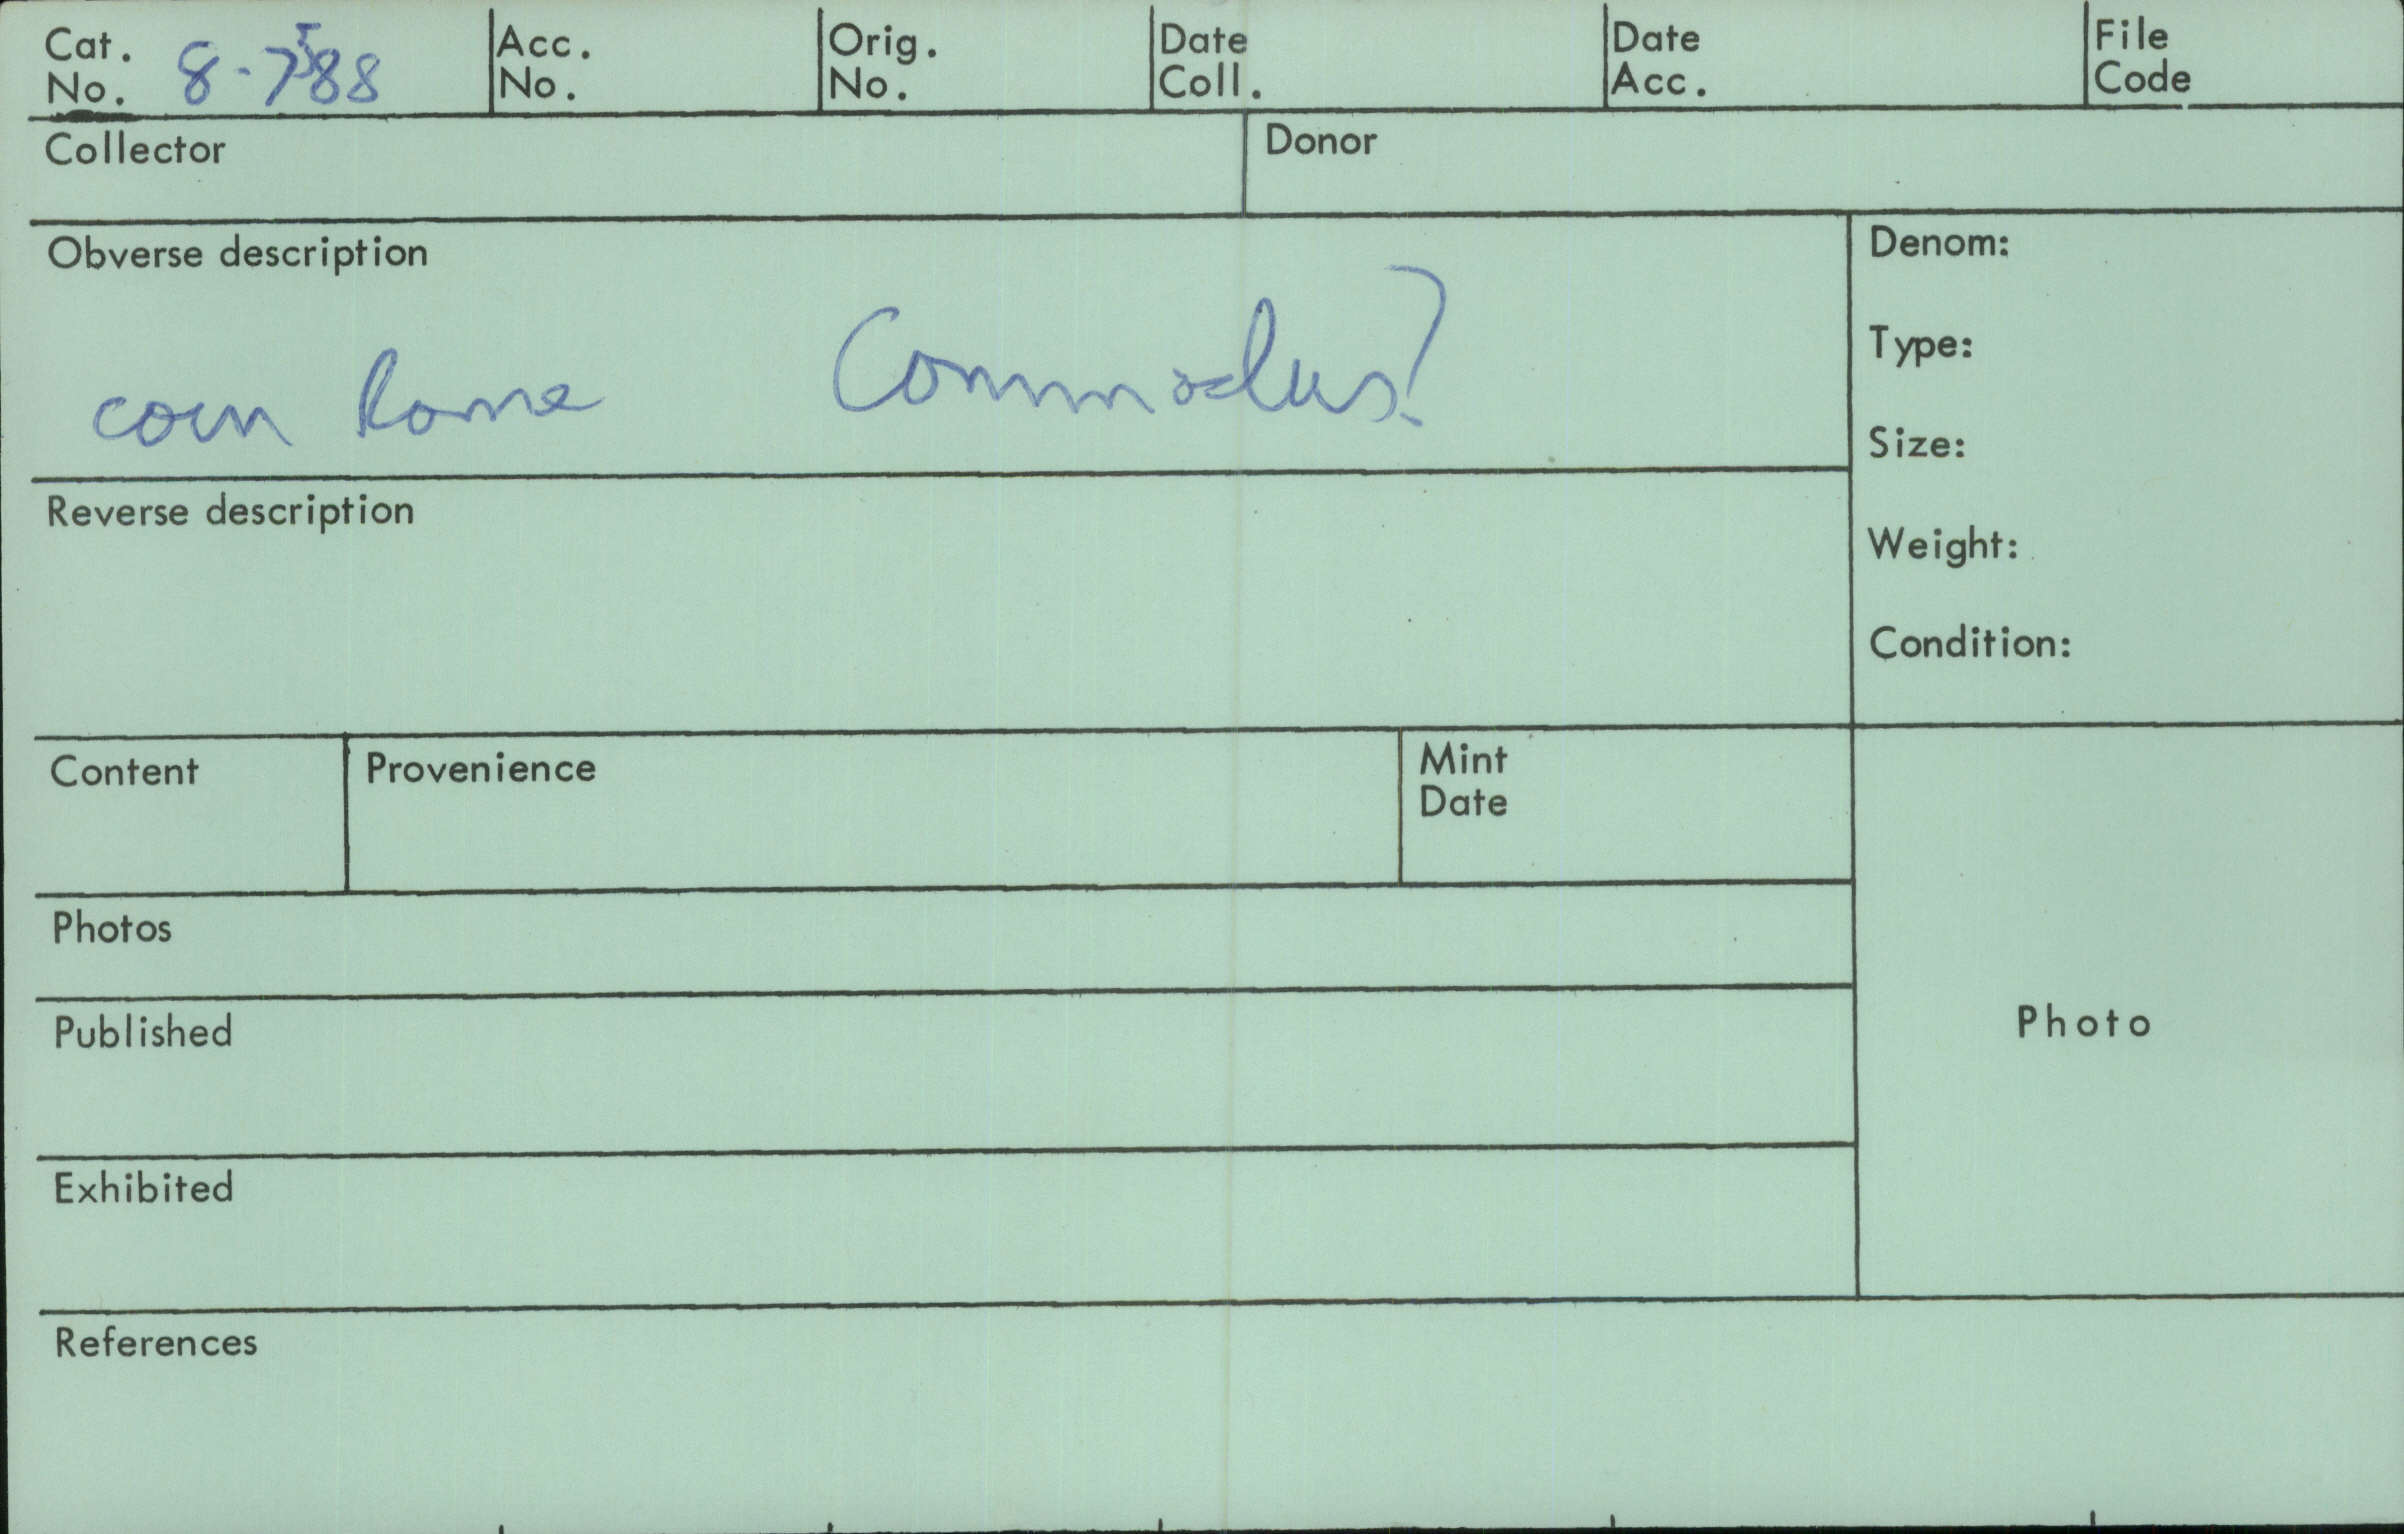 Cat. No. 8-7588
Acc. No.
Orig. No.
Date Coll.
Date Acc.
File Code
Collector
Donor
Obverse description
coin Rome Commodus?
Denom:
Type:
Size:
Weight:
Condition:
Reverse description
Content
Provenience
Mint Date
Photos
Published
Photo
Exhibited
References